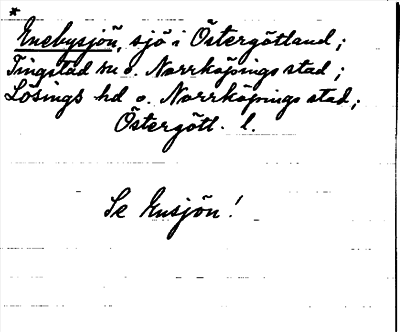 *
Enebysjön, sjö i Östergötland;
Tingstad sn o. Norrköpings stad;
Lösings hd o. Norrköpings stad;
Östergötl. l.
Se Ensjön!